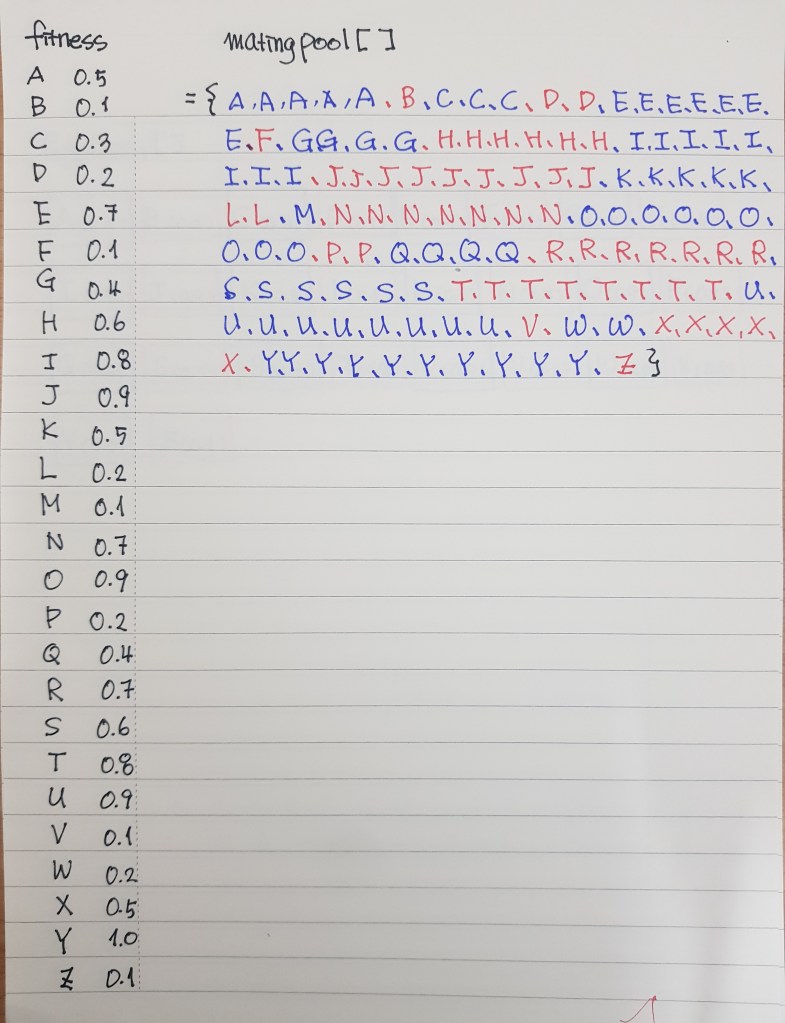 fitness
A 0.5
B 0.1
C 0.3
D 0.2
E 0.7
F 0.1
G 0.4
H 0.6
I 0.8
J 0.9
K 0.5
L 0.2
M 0.1
N 0.7
O 0.9
P 0.2
Q 0.4
R 0.7
S 0.6
T 0.8
U 0.9
V 0.1
W 0.2
X 0.5
Y 1.0
Z 0.1
matingpool[]
={ A, A, A, A, A, B, C, C, C, D, D, E, E, E, E, E, E,
E, F, G G, G, G, H, H, H, H, H, H, I, I, I, I, I,
I, I, I, J, J, J, J, J, J, J, J, J, K, K, K, K, K,
L, L, M, N, N, N, N, N, N, N, O, O, O, O, O, O,
O, O, O, P, P, Q, Q, Q, Q, R, R, R, R, R, R, R,
S, S, S, S, S, S, T, T, T, T, T, T, T, T, U,
U, U, U, U, U, U, U, U, V, W, W, X, X, X, X,
X, Y, Y, Y, Y, Y, Y, Y, Y, Y, Y, Z }